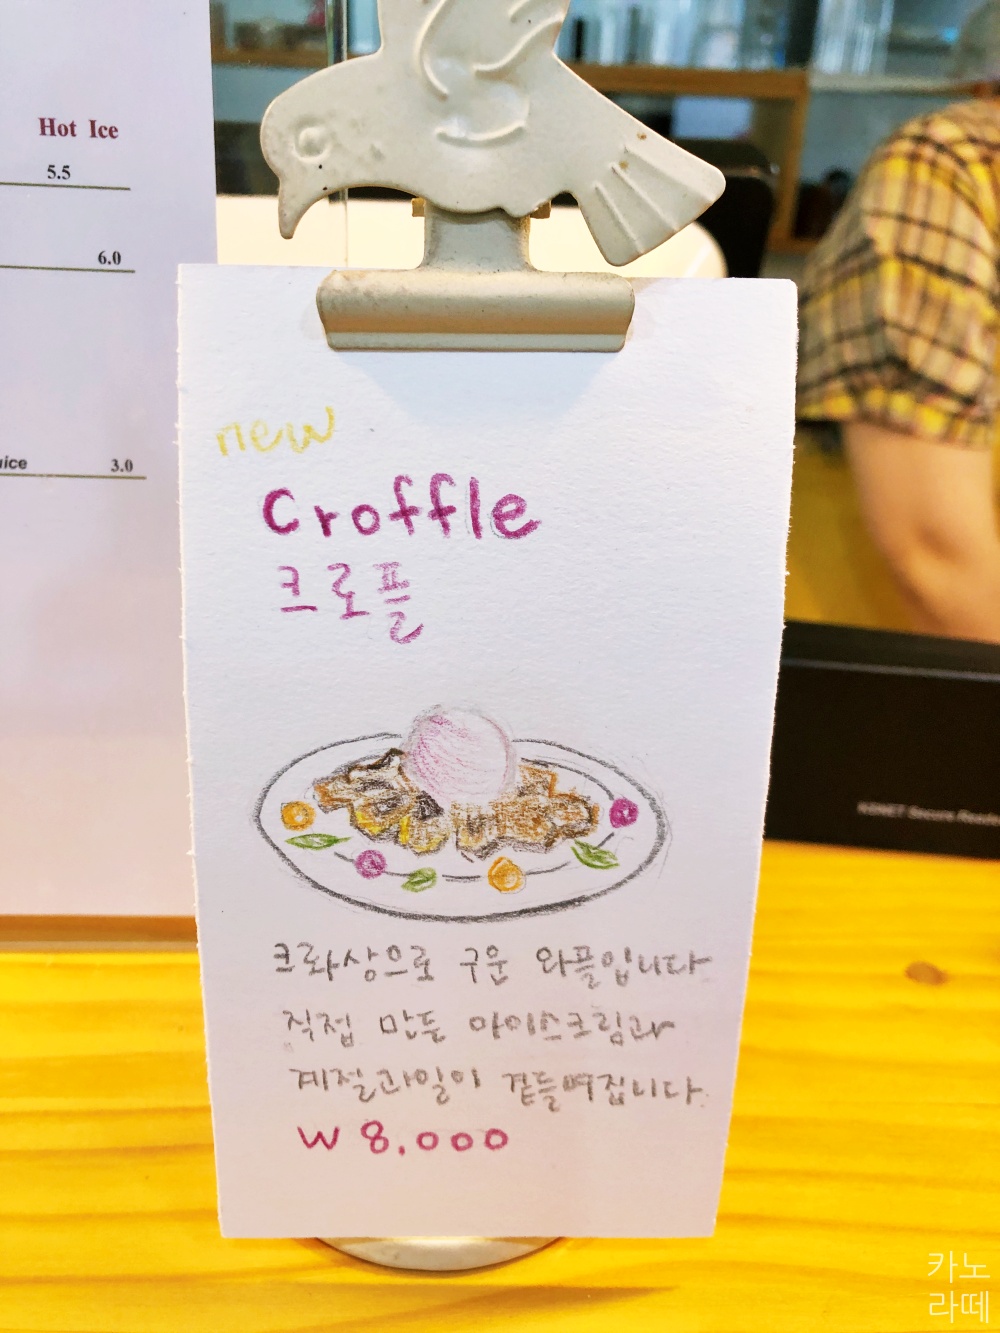 Hot Ice
5.5
6.0
3.0
new
Croffle
크로플
크롸상으로 구운 와플입니다
직접 만든 아이스크림과
계절과일이 곁들여집니다.
W 8,000
카노
라떼